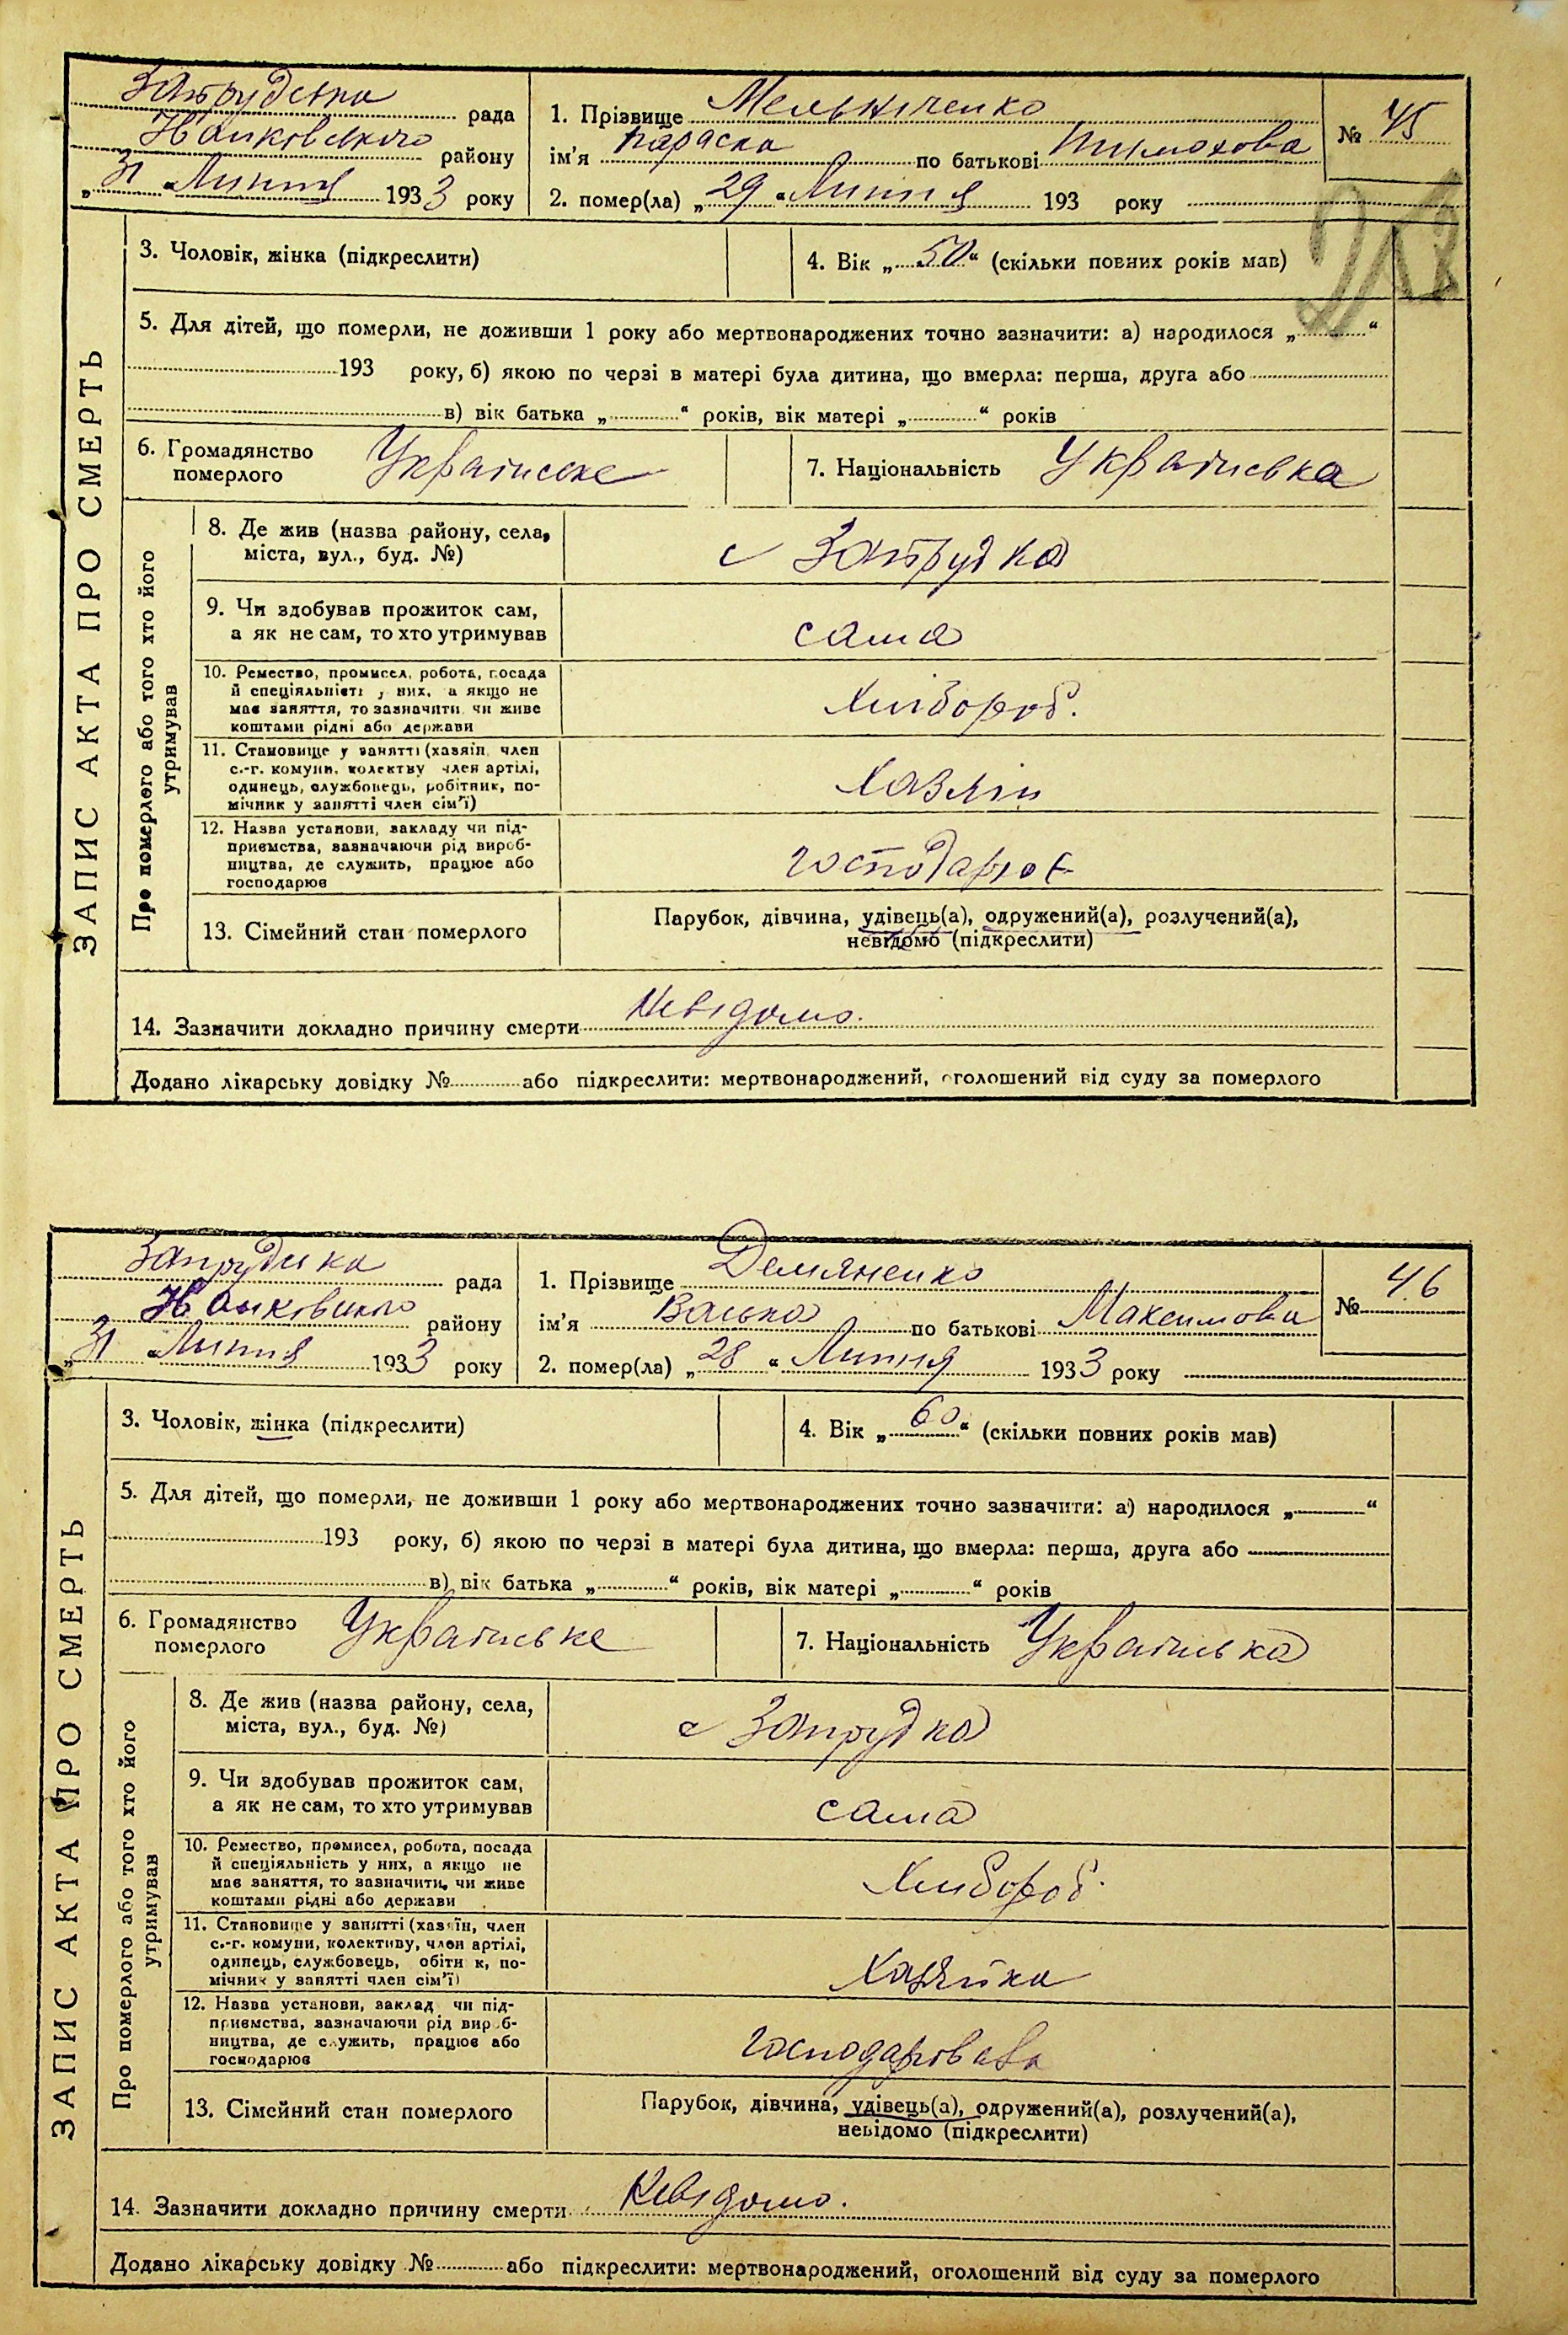 ЗАПИС АКТА ПРО СМЕРТЬ
рада
району
31 Липня 1933 року
1. Прізвище Мельниченко
ім'я Параска по батькові Тимохова
2. помер(ла) „29“ Липня 193 року
№ 45
3. Чоловік, жінка (підкреслити)
4. Вік „50“ (скільки повних років мав)
5. Для дітей, що померли, не доживши 1 року або мертвонароджених точно зазначити: а) народилося „ “
193 року, б) якою по черзі в матері була дитина, що вмерла: перша, друга або
в) вік батька „ “ років, вік матері „ “ років
6. Громадянство померлого Українське
7. Національність Українка
Про померлого або того хто його утримував
8. Де жив (назва району, села, міста, вул., буд. №)
с Запрудка
9. Чи здобував прожиток сам, а як не сам, то хто утримував
сама
10. Ремество, промисел, робота, посада й спеціяльність у них, а якщо не має заняття, то зазначити чи живе коштами рідні або держави
Хлібороб.
11. Становище у занятті (хазяїн, член с.-г. комуни, колективу член артілі, одинець, службовець, робітник, помічник у занятті член сім'ї)
Хазяїн
12. Назва установи, закладу чи підприємства, зазначаючи рід виробництва, де служить, працює або господарює
господарює
13. Сімейний стан померлого
Парубок, дівчина, удівець(а), одружений(а), розлучений(а),
невідомо (підкреслити)
14. Зазначити докладно причину смерти Невідомо.
Додано лікарську довідку № або підкреслити: мертвонароджений, оголошений від суду за померлого
ЗАПИС АКТА ПРО СМЕРТЬ
рада
району
31 Липня 1933 року
1. Прізвище Демяненко
ім'я Васька по батькові Максимова
2. помер(ла) „28“ Липня 1933 року
№ 46
3. Чоловік, жінка (підкреслити)
4. Вік „60“ (скільки повних років мав)
5. Для дітей, що померли, не доживши 1 року або мертвонароджених точно зазначити: а) народилося „ “
193 року, б) якою по черзі в матері була дитина, що вмерла: перша, друга або
в) вік батька „ “ років, вік матері „ “ років
6. Громадянство померлого Українське
7. Національність Українка
Про померлого або того хто його утримував
8. Де жив (назва району, села, міста, вул., буд. №)
с Запрудка
9. Чи здобував прожиток сам, а як не сам, то хто утримував
сама
10. Ремество, промисел, робота, посада й спеціяльність у них, а якщо не має заняття, то зазначити, чи живе коштами рідні або держави
Хлібороб.
11. Становище у занятті (хазяїн, член с.-г. комуни, колективу, член артілі, одинець, службовець, робітник, помічник у занятті член сім'ї)
Хазяйка
12. Назва установи, заклад чи підприємства, зазначаючи рід виробництва, де служить, працює або господарює
господарювала
13. Сімейний стан померлого
Парубок, дівчина, удівець(а), одружений(а), розлучений(а),
невідомо (підкреслити)
14. Зазначити докладно причину смерти Невідомо.
Додано лікарську довідку № або підкреслити: мертвонароджений, оголошений від суду за померлого